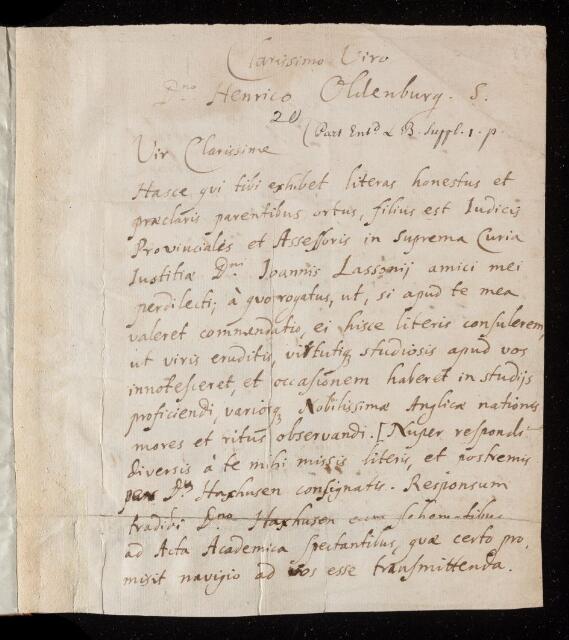 Clarissimo Viro
Dno Henrico Oldenburg. S.
20
(Part Entd L. B. Suppl. 1. p.
Vir Clarissime
Hasce qui tibi exhibet literas honestus et
præclaris parentibus ortus, filius est Iudicis
Provincialis et Assessoris in Suprema Curia
Iustitiæ Dni Ioannis Lassonij amici mei
perdilecti; à quo rogatus, ut, si apud te mea
valeret commendatio, ei hisce literis consulerem,
ut viris eruditis, virtutiq studiosis apud vos
innotesceret, et occasionem haberet in studijs
proficiendi, variosq Nobilissimæ Anglicæ nationis
mores et ritus observandi. [Nuper respondi
diversis à te mihi missis literis, et postremis
Do Haxhusen consignatis. Responsum
tradidi Dno Haxhusen cum
ad Acta Academica spectantibus, quæ certo pro,
misit navigio ad vos esse transmittenda.